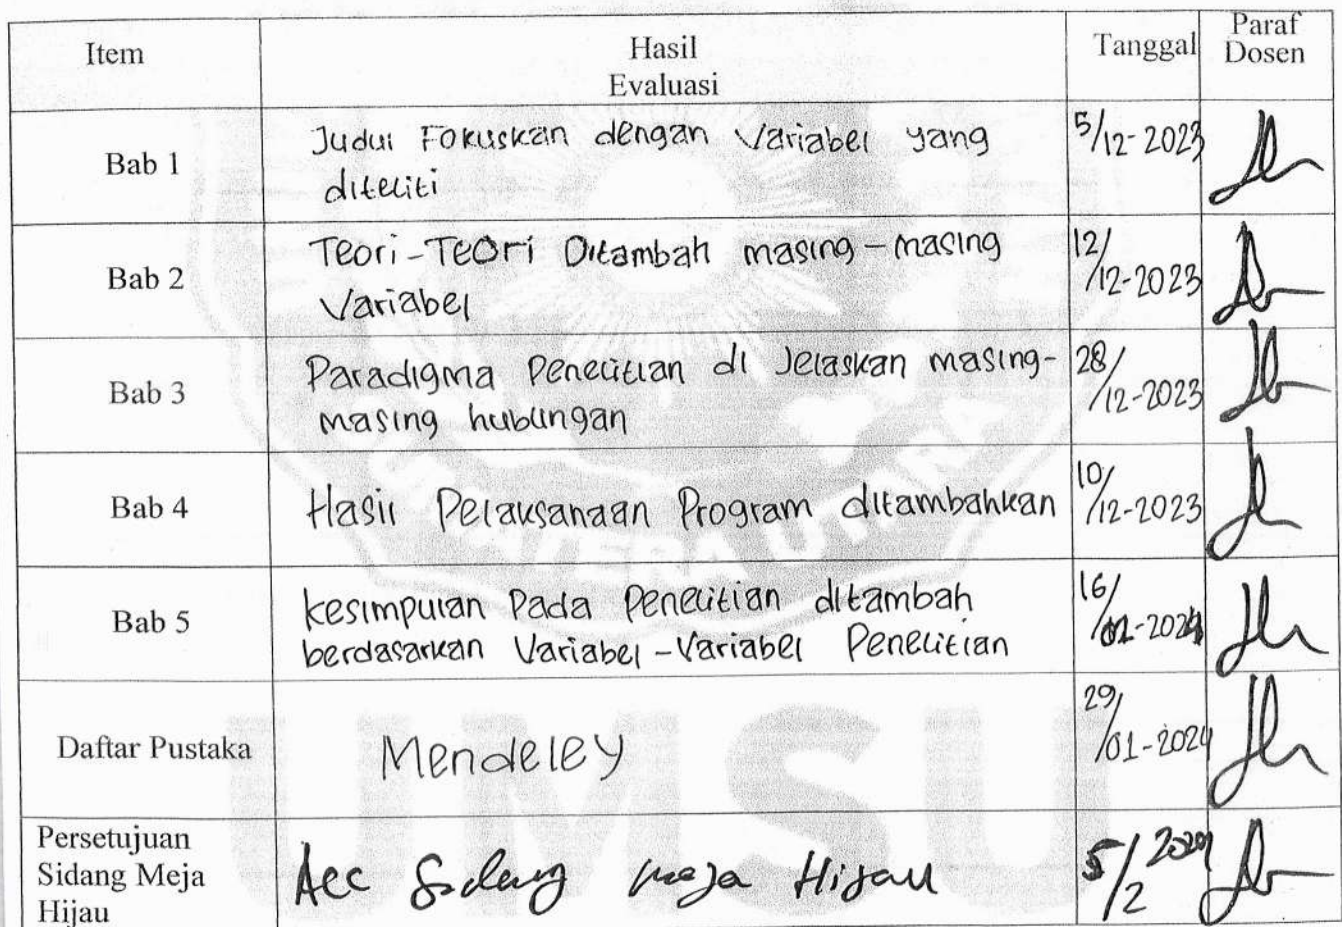 Item
Hasil
Evaluasi
Tanggal
Paraf
Dosen
Bab 1
Judul Fokuskan dengan Variabel yang
diteliti
5/12-2023
Bab 2
Teori-Teori Ditambah masing-masing
Variabel
12/12-2023
Bab 3
Paradigma Penelitian di Jelaskan masing-
masing hubungan
28/12-2023
Bab 4
Hasil Pelaksanaan Program ditambahkan
10/12-2023
Bab 5
kesimpulan Pada Penelitian ditambah
berdasarkan Variabel-Variabel Penelitian
16/01-2024
Daftar Pustaka
Mendeley
29/01-2024
Persetujuan
Sidang Meja
Hijau
Acc Sidang meja Hijau
5/2 2024
UMSU